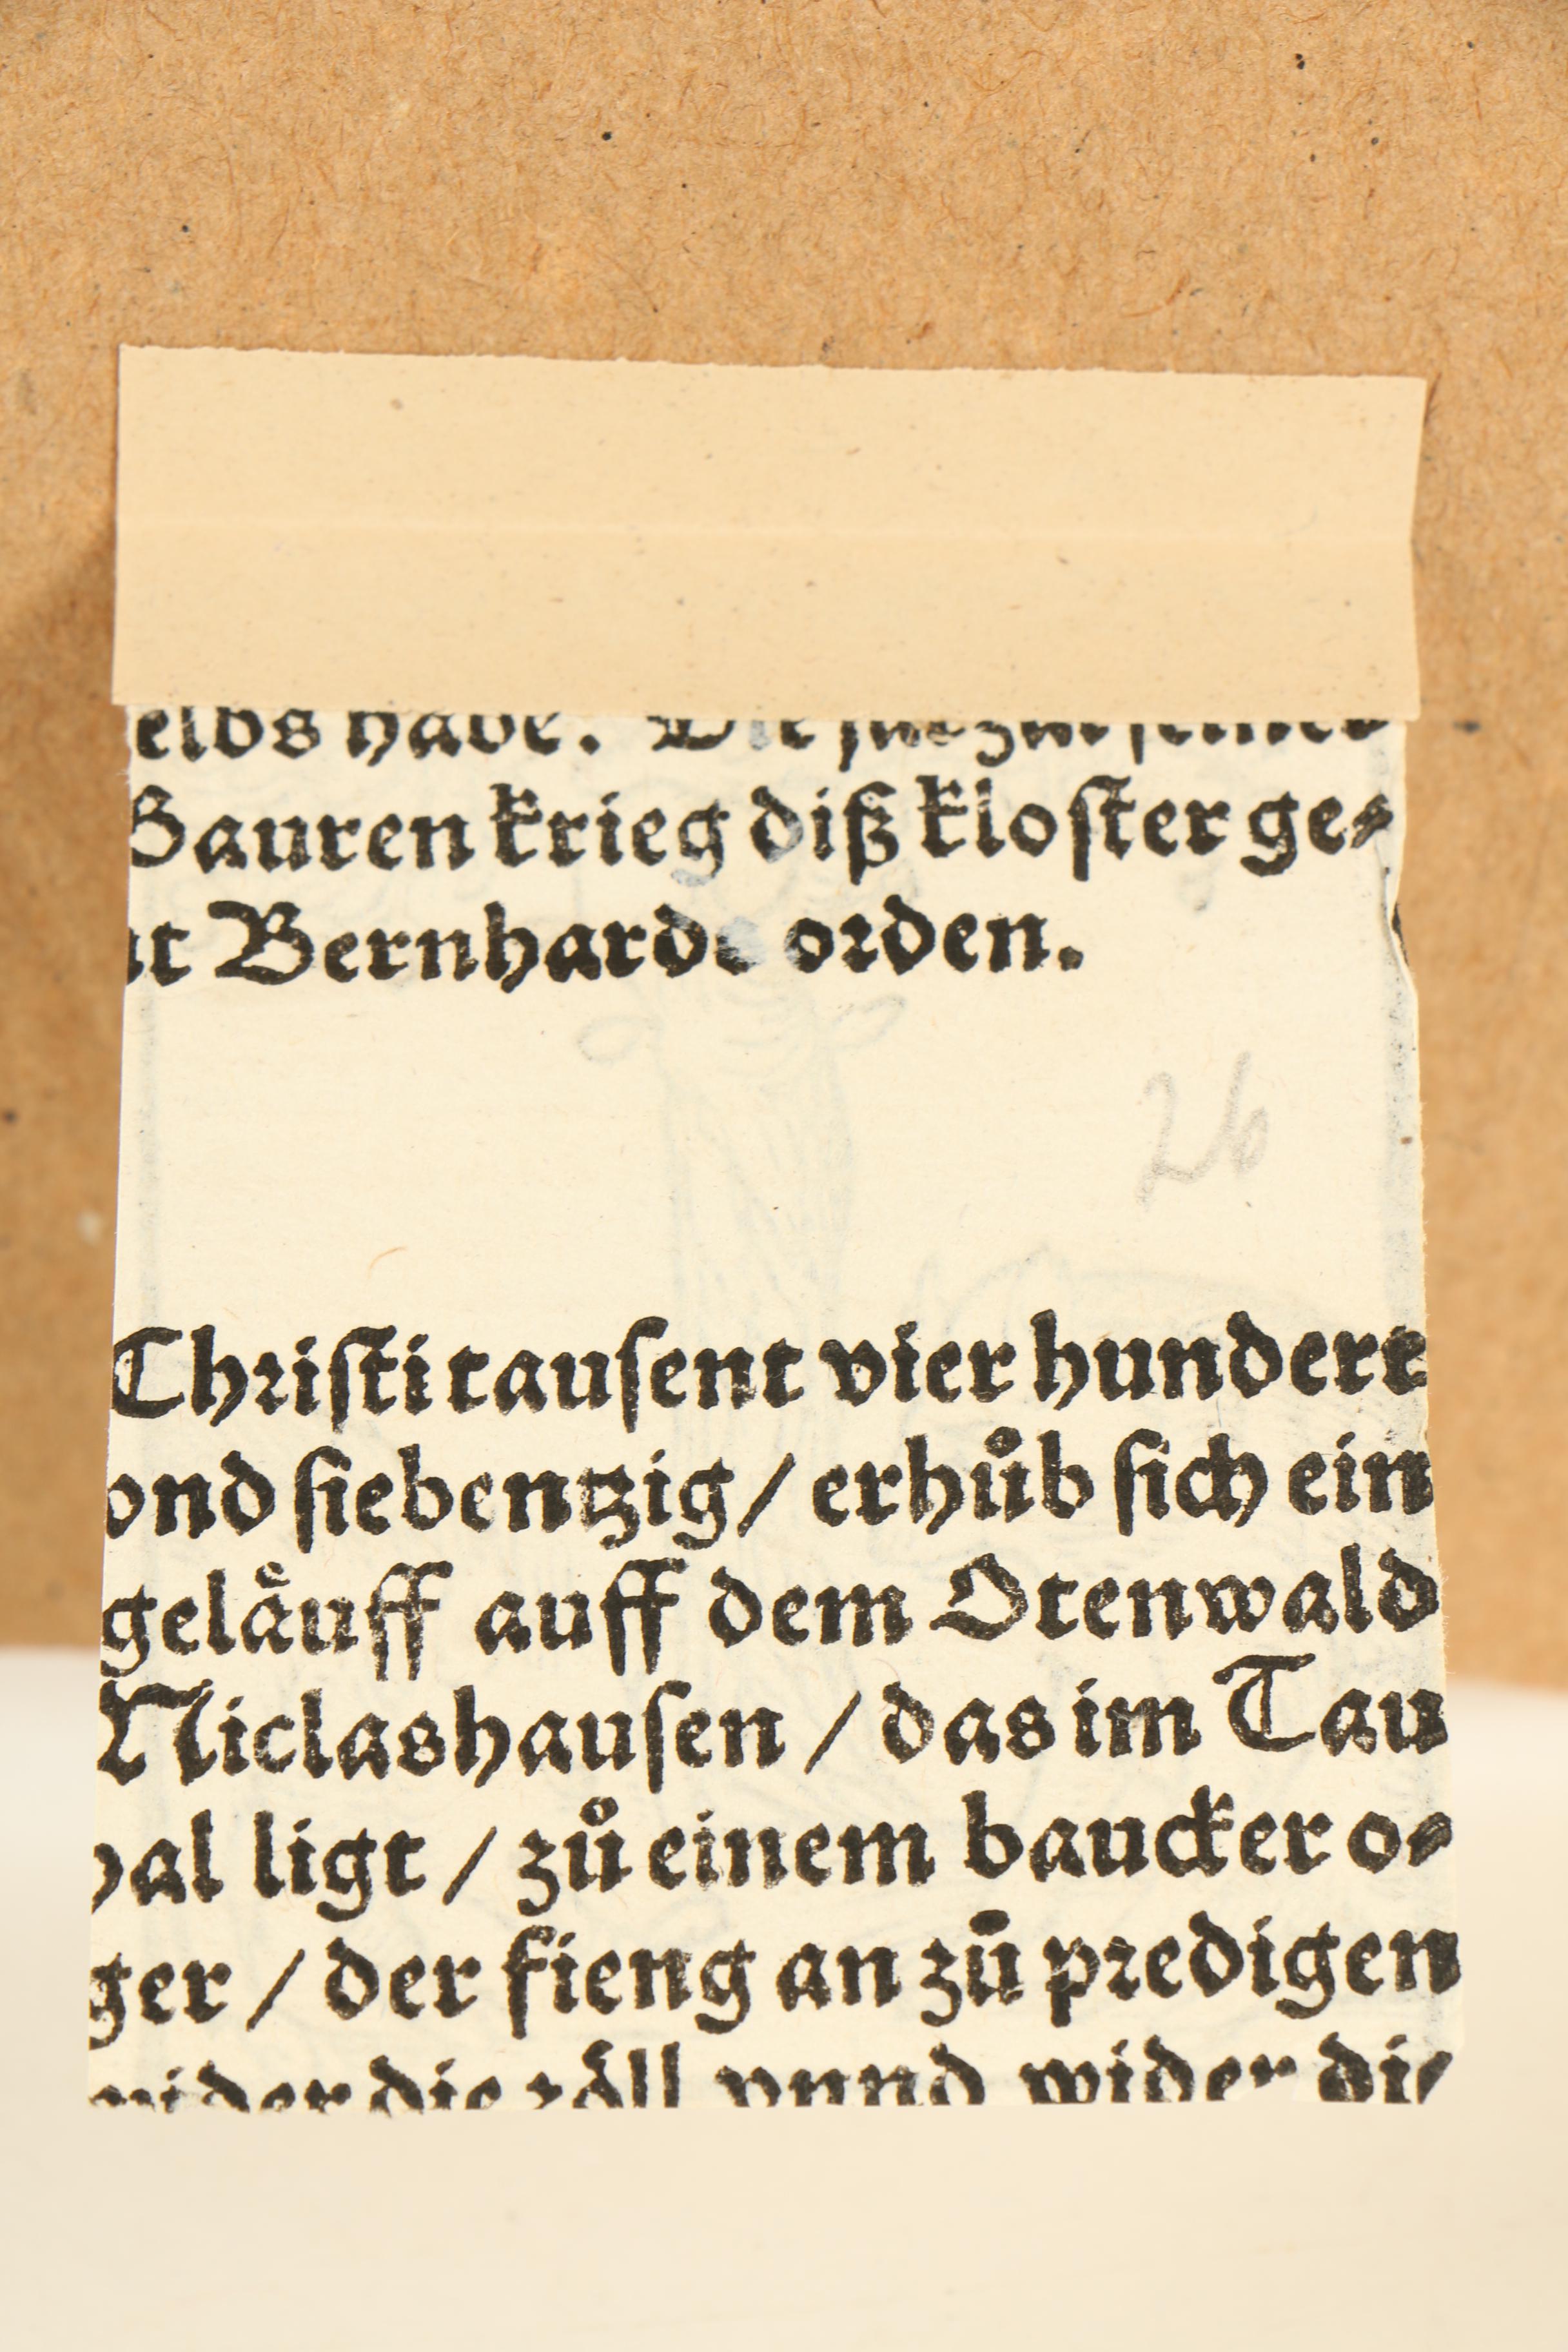 elbs habe. Die
Baurenkrieg diß kloster ge⸗
Bernhards orden.
26
Christi tausent vier hundert
vnd siebentzig / erhůb sich ein
geläuff auff dem Otenwald
Niclashausen / das im Tau
ligt / zů einem baucker o⸗
ger / der fieng an zů predigen
wider die zöll vnnd wider die